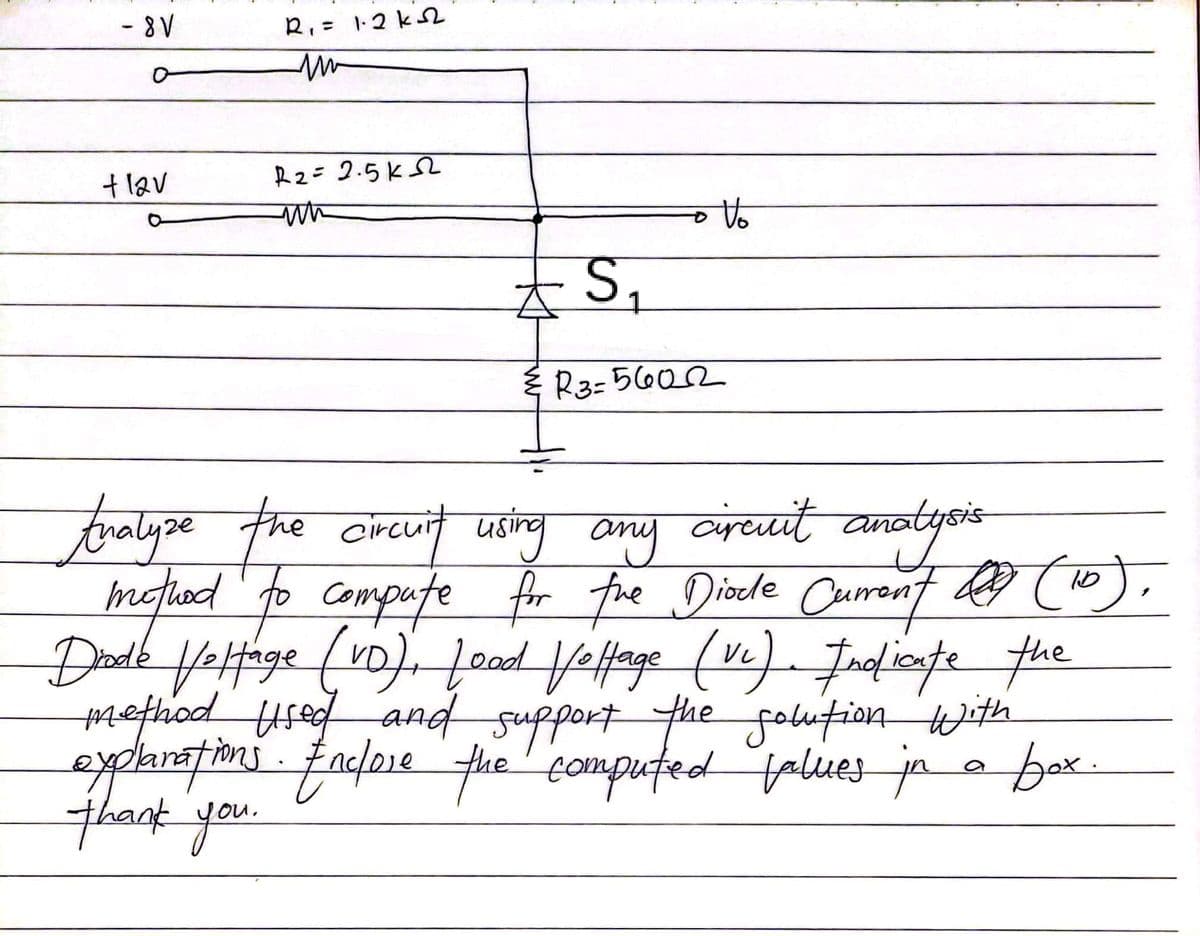 - 8V R₁ = 1.2 kΩ
+12V R2 = 2.5 kΩ
Vo
S₁
R3 = 560Ω
Analyze the circuit using any circuit analysis
method to compute for the Diode Current (ID).
Diode Voltage (VD), Load Voltage (VL). Indicate the
method used and support the solution with
explanations. Enclose the computed values in a box.
thank you.